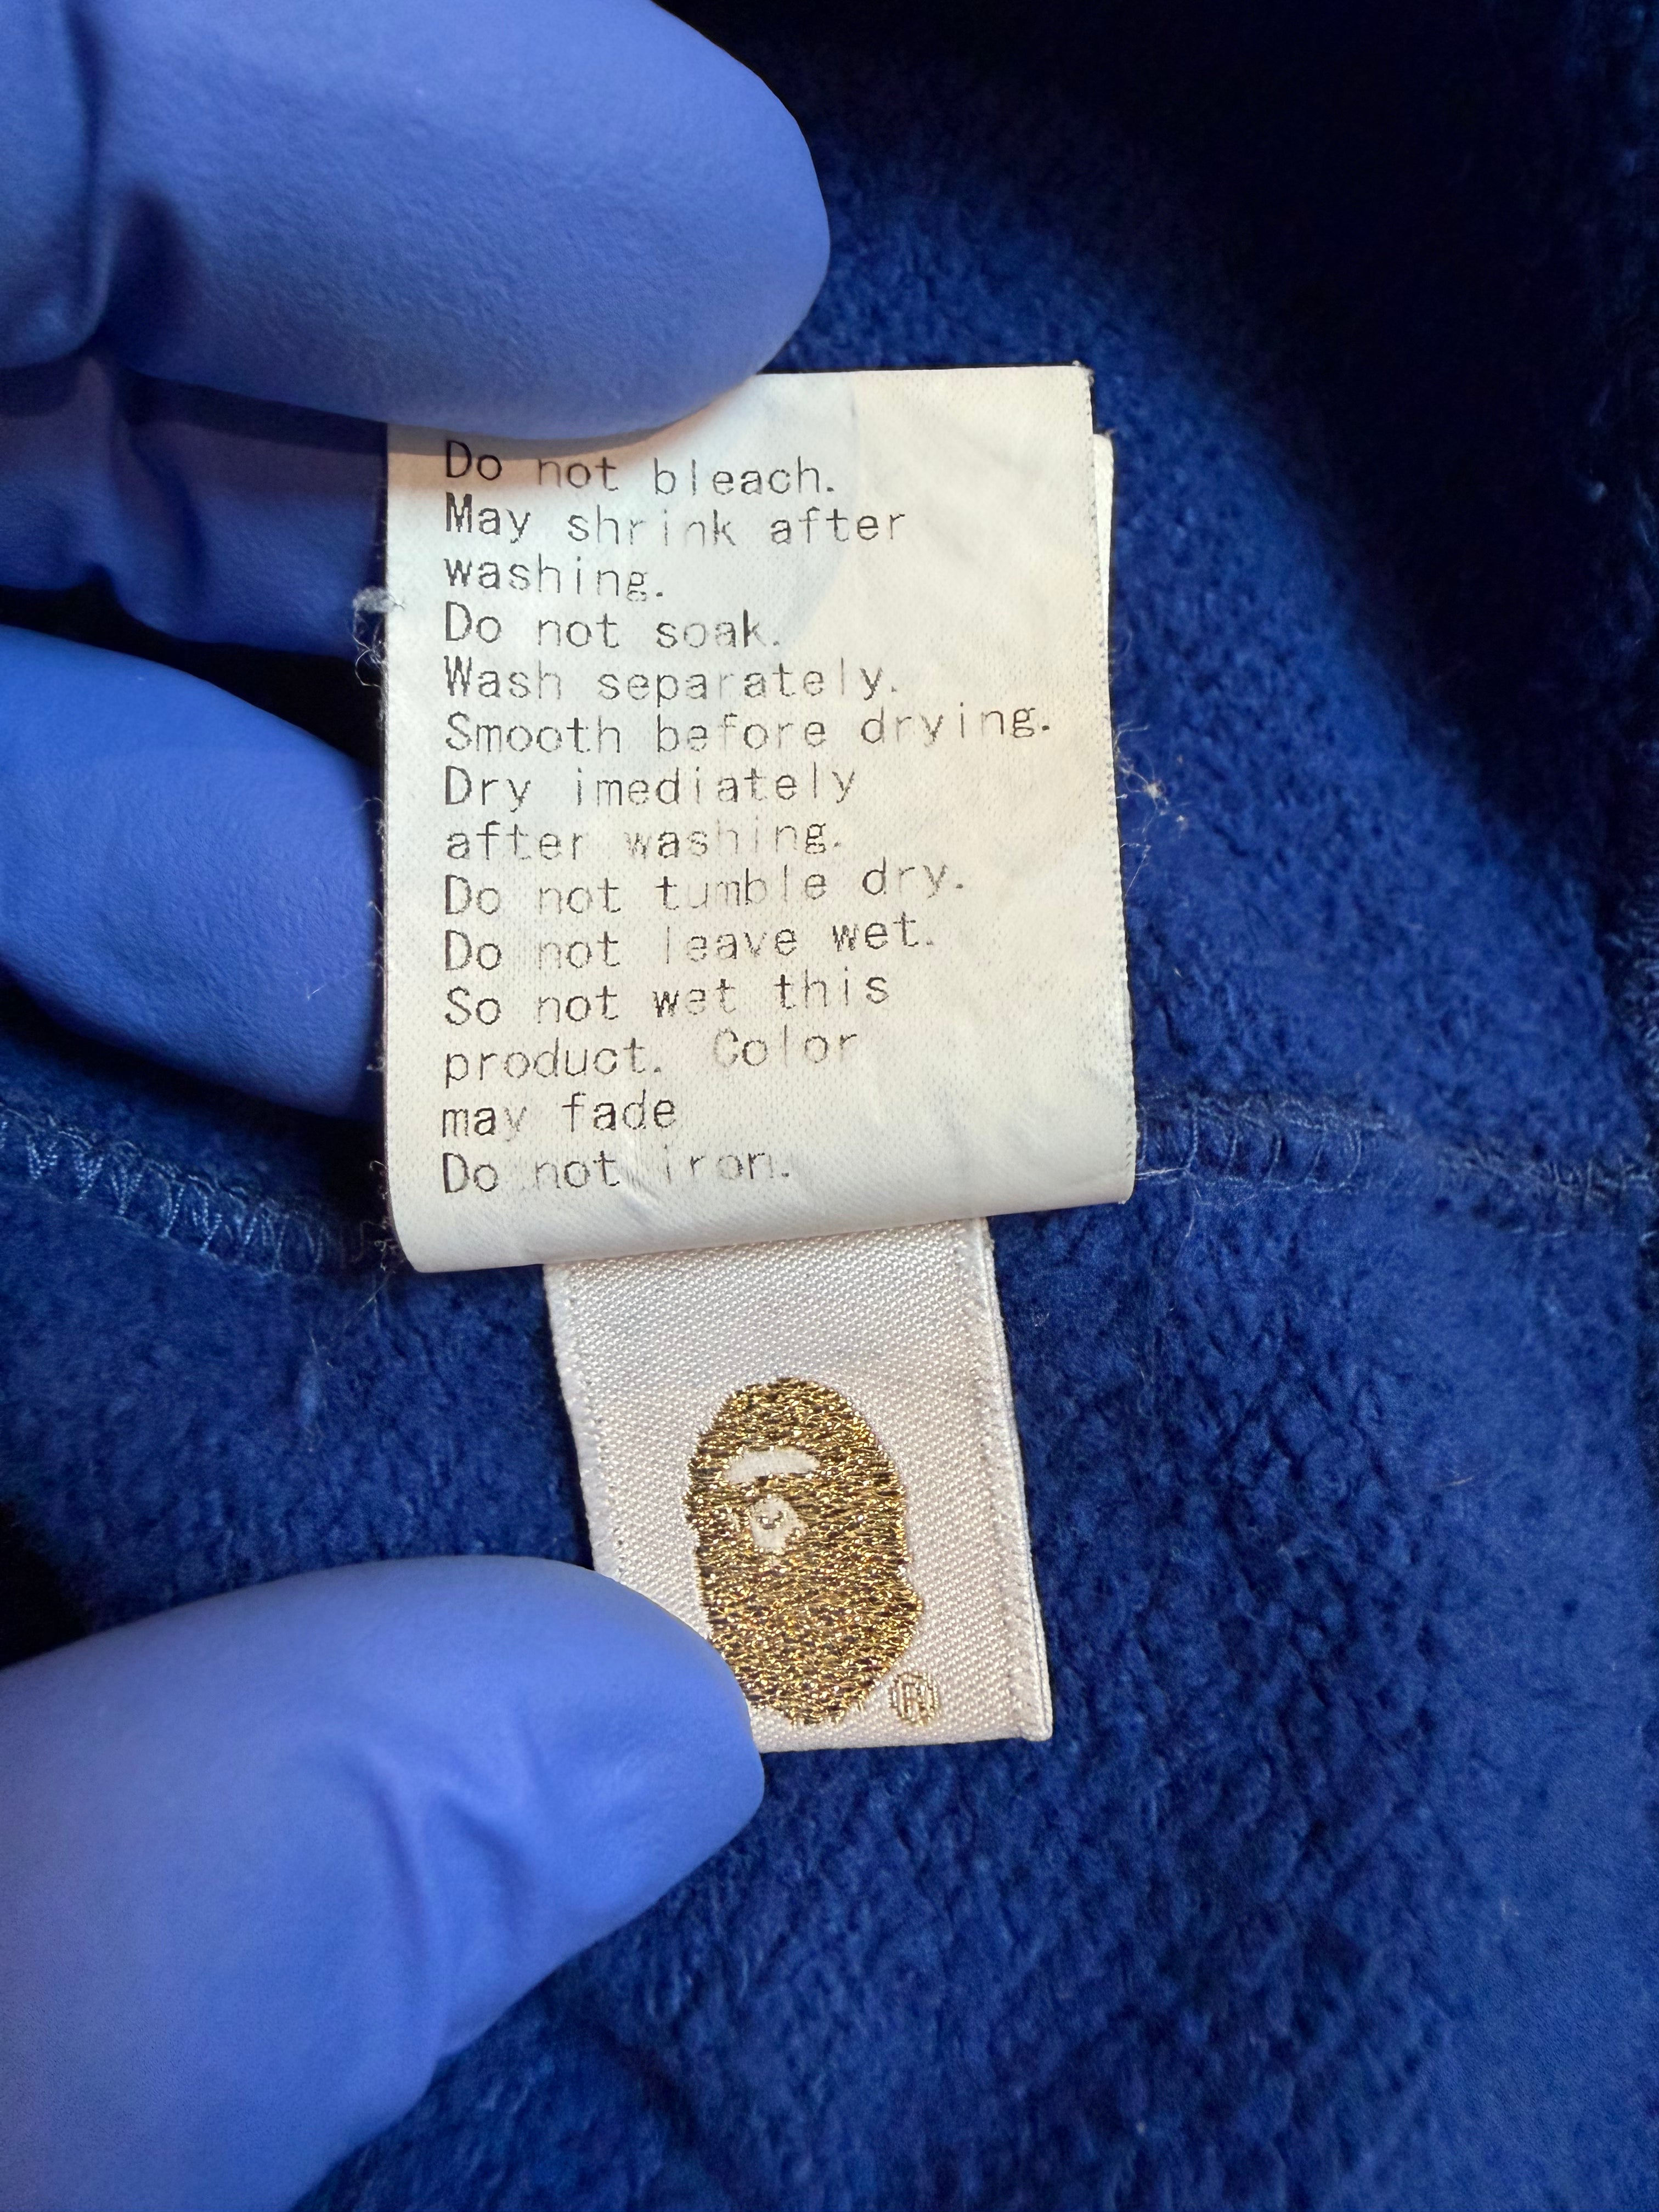 Do not bleach.
May shrink after
washing.
Do not soak.
Wash separately.
Smooth before drying.
Dry imediately
after washing.
Do not tumble dry.
Do not leave wet.
So not wet this
product. Color
may fade
Do not iron.
®